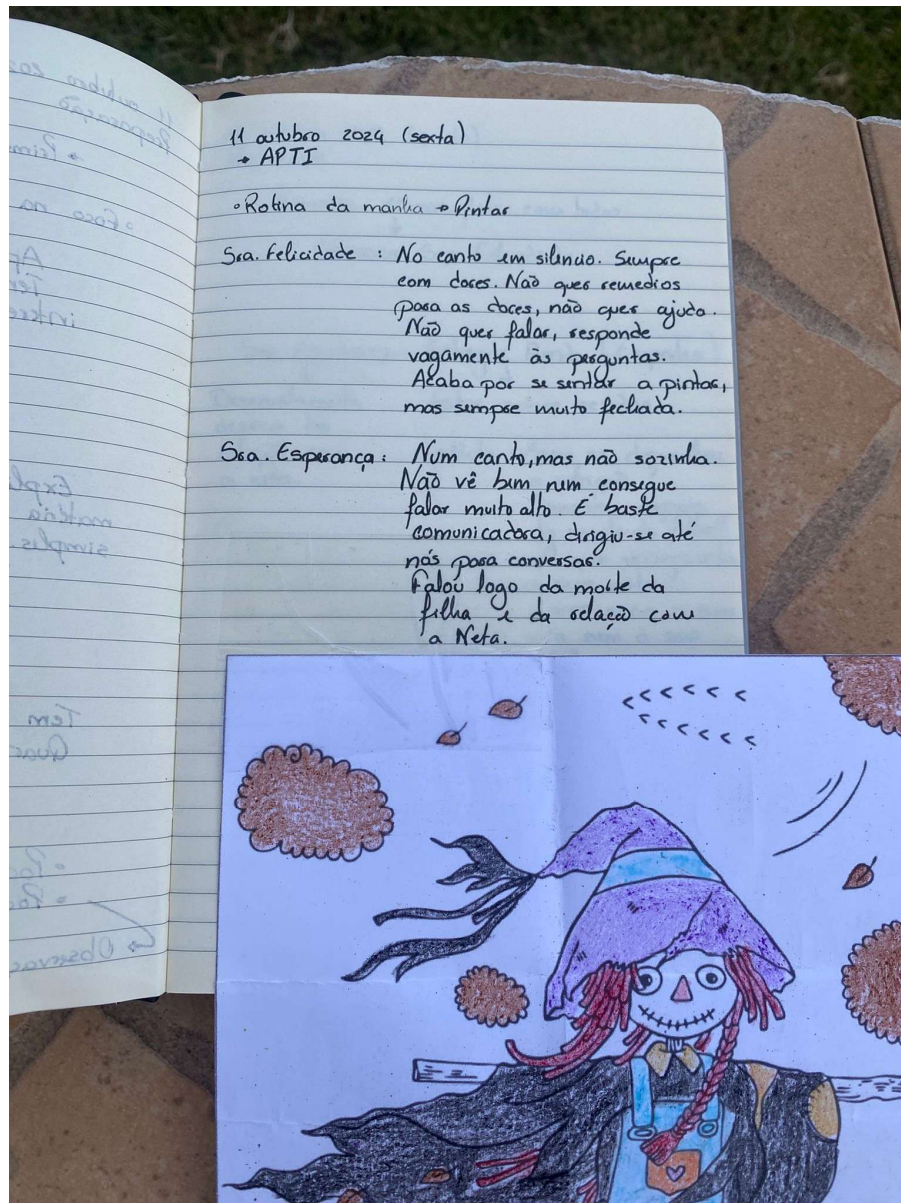 11 outubro 2024 (sexta)
→ APTI
• Rotina da manha → Pintar
Sra. Felicidade : No canto em silencio. Sempre
com dores. Não quer remedios
para as dores, não quer ajuda.
Não quer falar, responde
vagamente às perguntas.
Acaba por se sentar a pintar,
mas sempre muito fechada.
Sra. Esperança : Num canto, mas não sozinha.
Não vê bem nem consegue
falar muito alto. É baste
comunicadora, dirigiu-se até
nós para conversar.
Falou logo da morte da
filha e da relação com
a Neta.